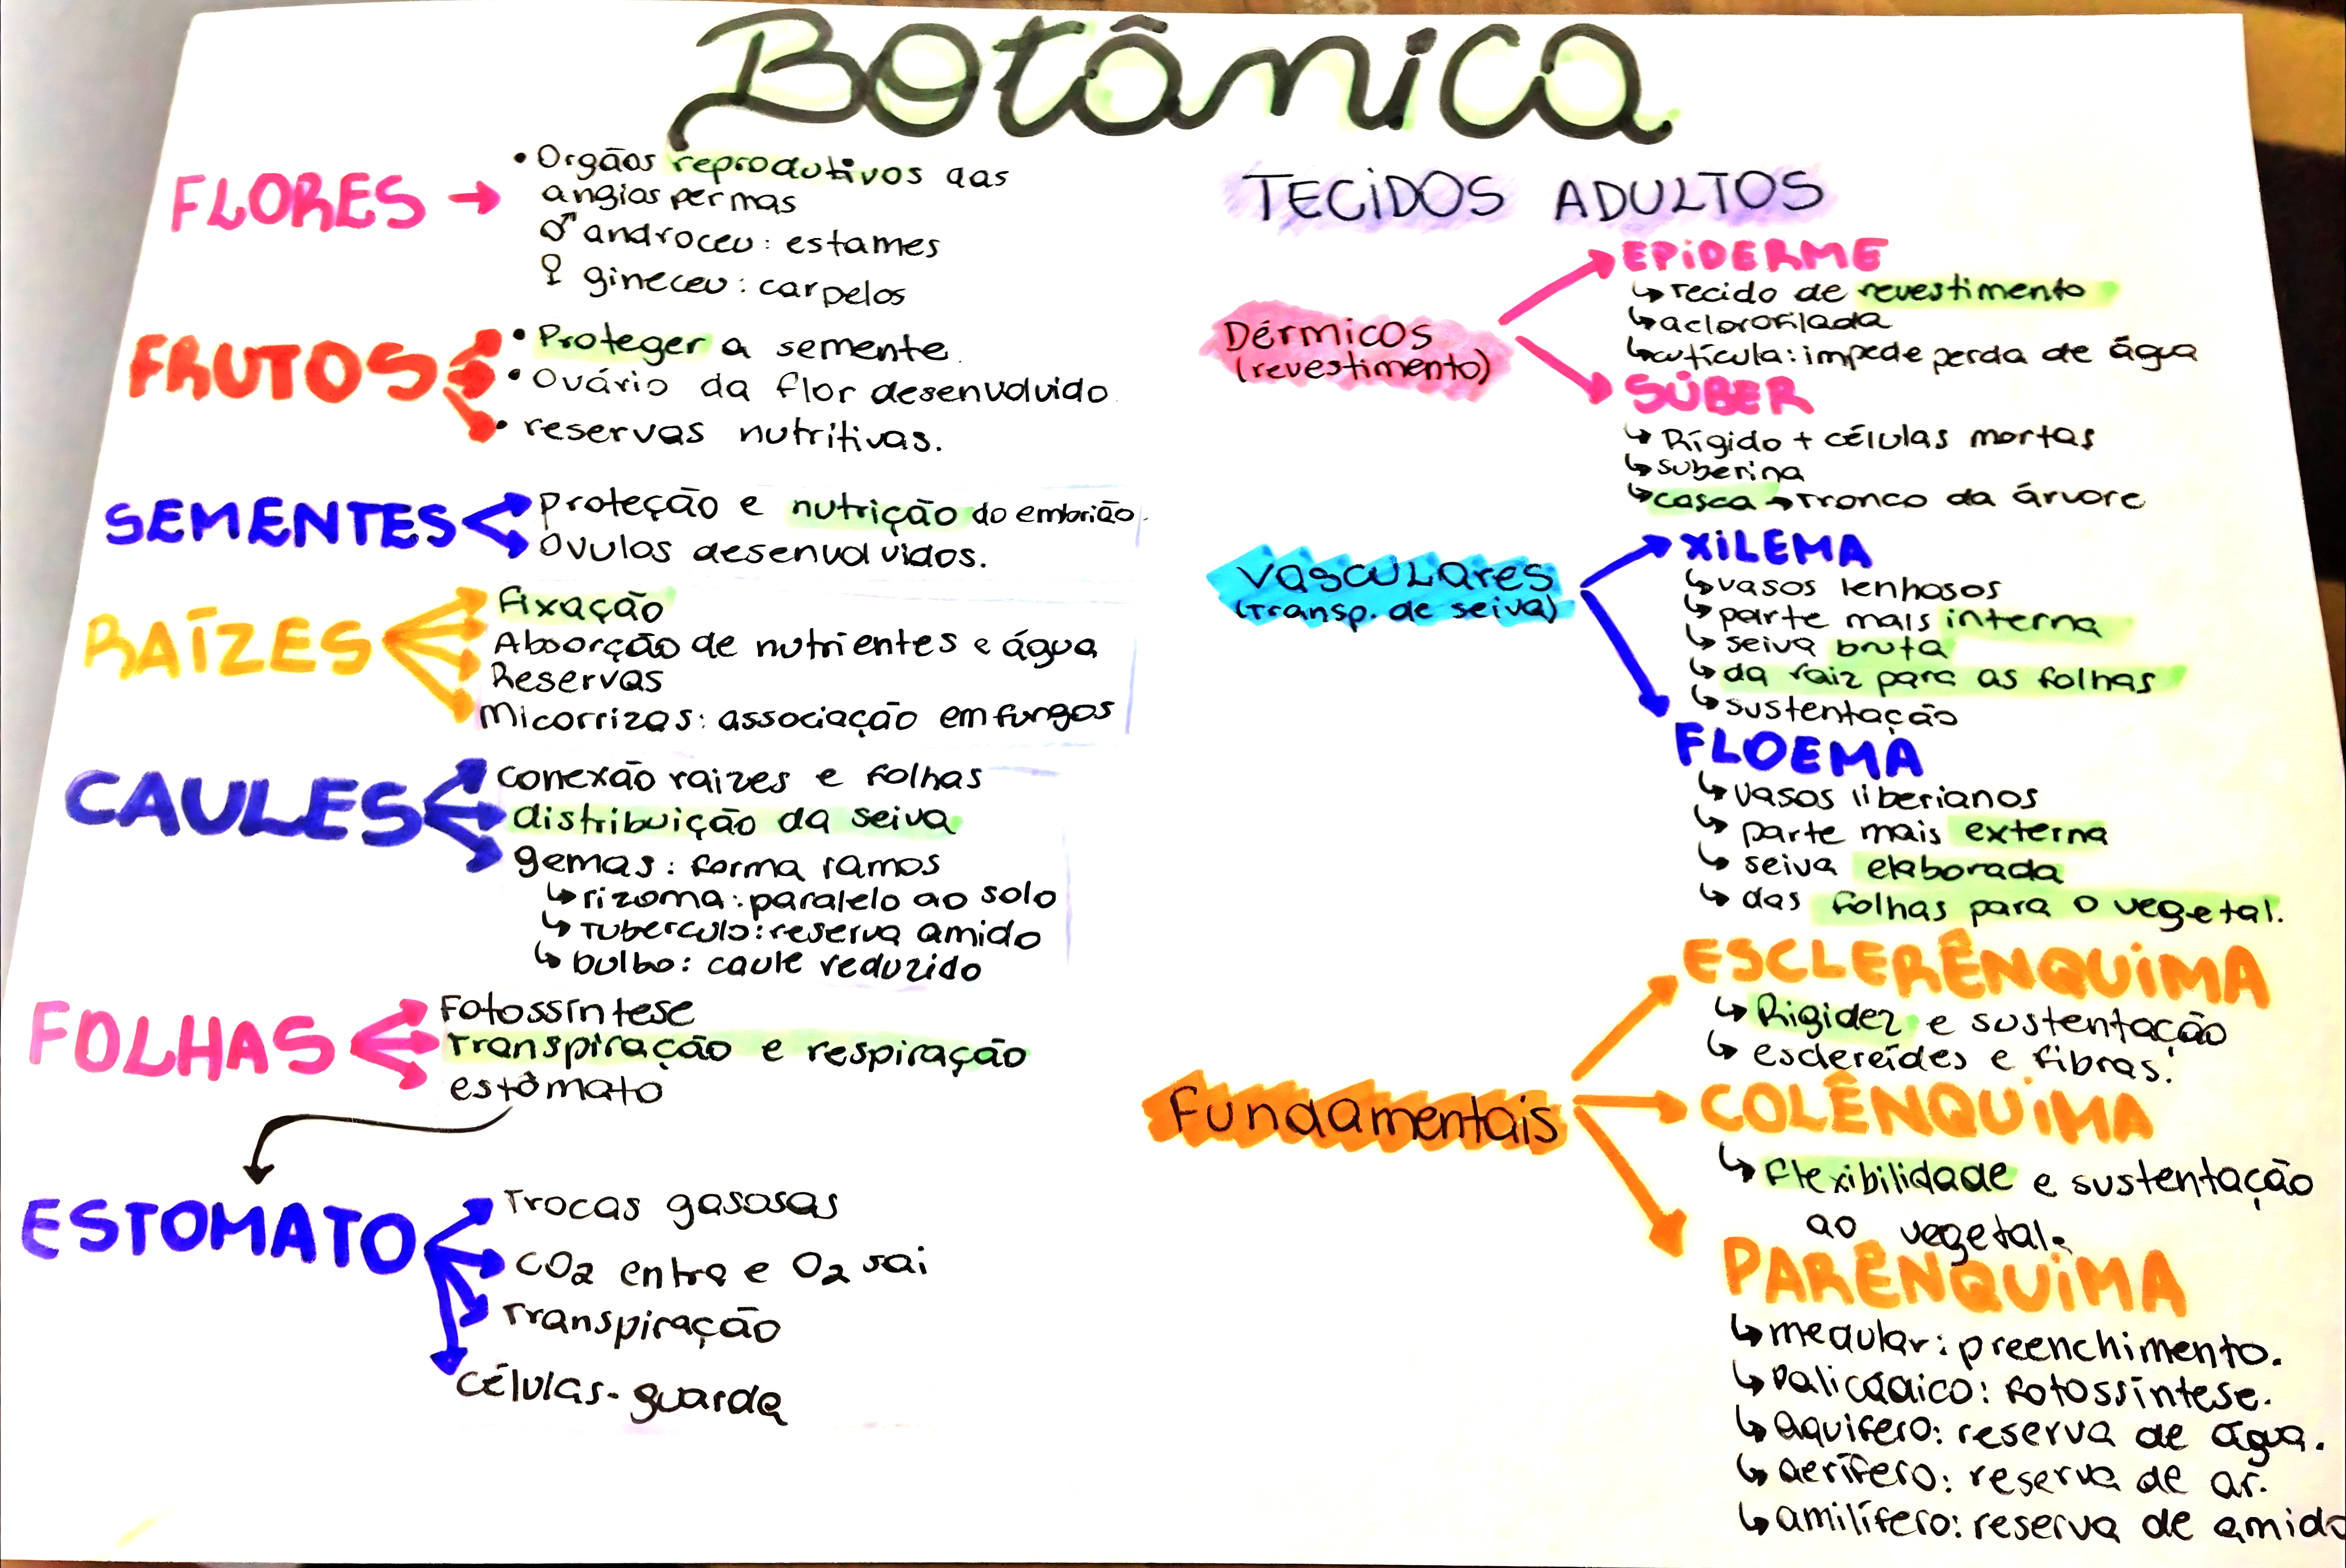 Botânica
FLORES
• Orgãos reprodutivos das
angiospermas
♂ androceu: estames
♀ gineceu: carpelos
FRUTOS
• Proteger a semente.
• Ovário da flor desenvolvido.
• reservas nutritivas.
SEMENTES
proteção e nutrição do embrião.
Óvulos desenvolvidos.
RAÍZES
Fixação
Absorção de nutrientes e água
Reservas
Micorrizas: associação em fungos
CAULES
conexão raizes e folhas
distribuição da seiva
gemas: forma ramos
↳ rizoma: paralelo ao solo
↳ Tuberculo: reserva amido
↳ bulbo: caule reduzido
FOLHAS
Fotossíntese
Transpiração e respiração
estômato
ESTOMATO
Trocas gasosas
CO2 entra e O2 sai
Transpiração
células-guarda
TECIDOS ADULTOS
Dérmicos
(revestimento)
EPIDERME
↳ Tecido de revestimento
↳ aclorofilada
↳ cutícula: impede perda de água
SÚBER
↳ Rígido + células mortas
↳ suberina
↳ casca → Tronco da árvore
Vasculares
(Transp. de seiva)
XILEMA
↳ vasos lenhosos
↳ parte mais interna
↳ seiva bruta
↳ da raiz para as folhas
↳ sustentação
FLOEMA
↳ vasos liberianos
↳ parte mais externa
↳ seiva elaborada
↳ das folhas para o vegetal.
Fundamentais
ESCLERÊNQUIMA
↳ Rigidez e sustentação
↳ esclereídes e fibras.
COLÊNQUIMA
↳ Flexibilidade e sustentação
ao vegetal.
PARÊNQUIMA
↳ medular: preenchimento.
↳ Paliçádico: fotossíntese.
↳ aquifero: reserva de água.
↳ aerífero: reserva de ar.
↳ amilífero: reserva de amido